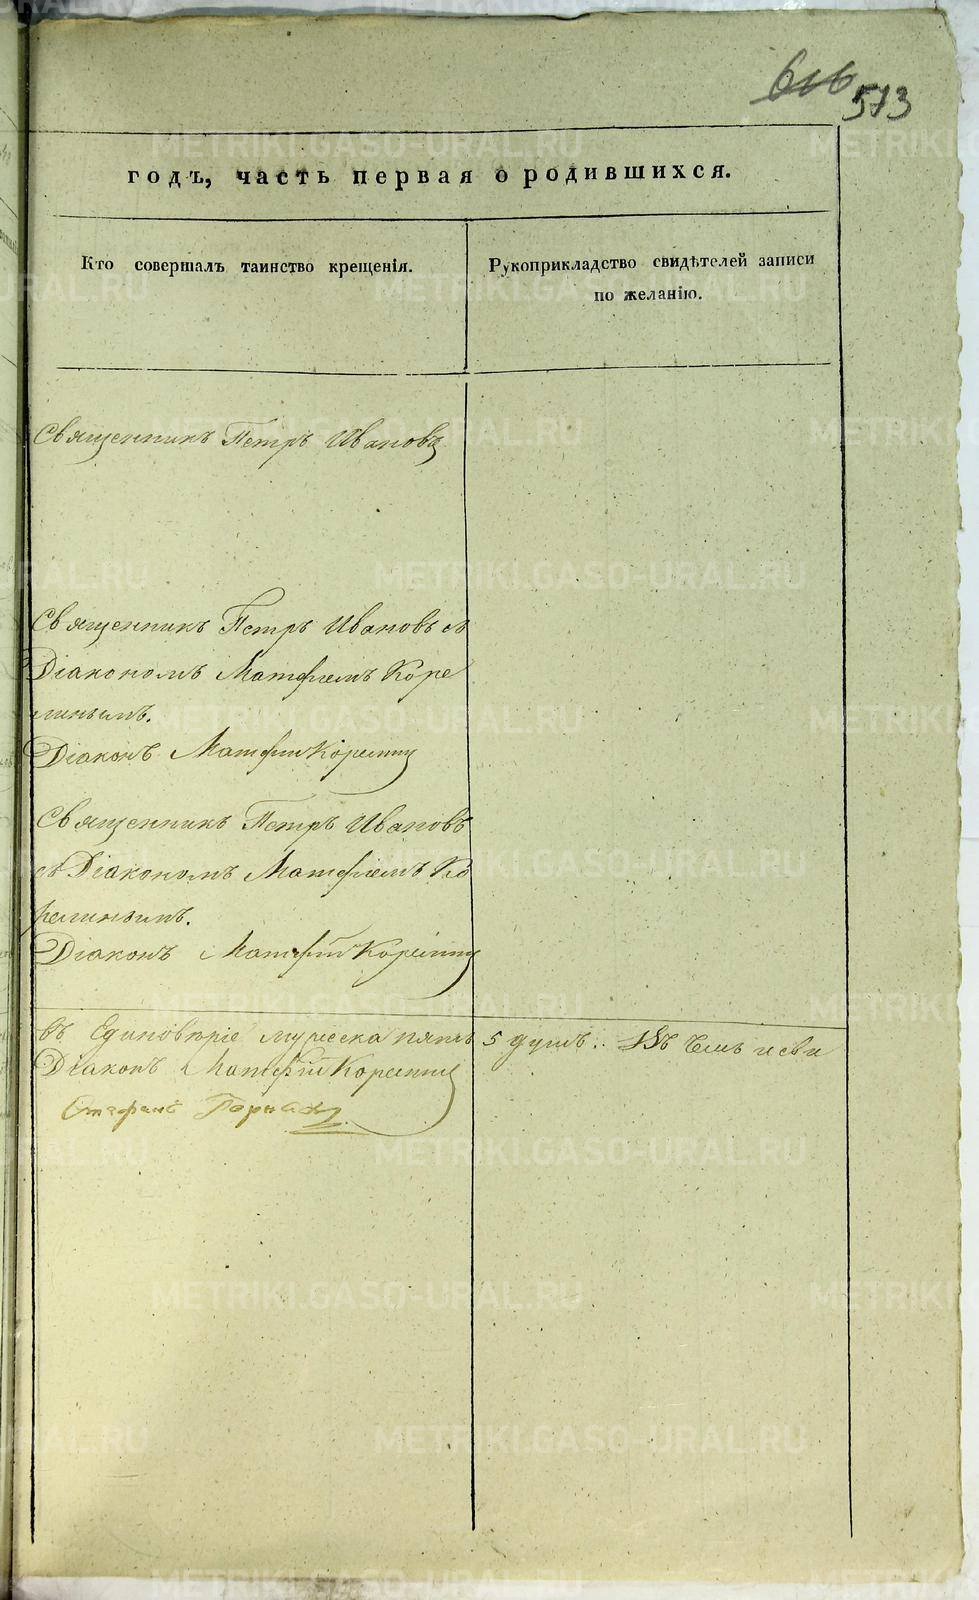 573
годъ, часть первая о родившихся.
Кто совершалъ таинство крещенія.
Рукоприкладство свидѣтелей записи
по желанію.
Священникъ Петръ Ивановъ
Священникъ Петръ Ивановъ съ
Діакономъ Матфіемъ Коре
линымъ.
Діаконъ Матфій Корелинъ
Священникъ Петръ Ивановъ
съ Діакономъ Матфіемъ Ко
релинымъ.
Діаконъ Матфій Корелинъ
въ Единовѣріе мужеска пять 5 душъ. Въ чемъ и сви
Діаконъ Матфій Корелинъ
Стефанъ
METRIKI.GASO-URAL.RU